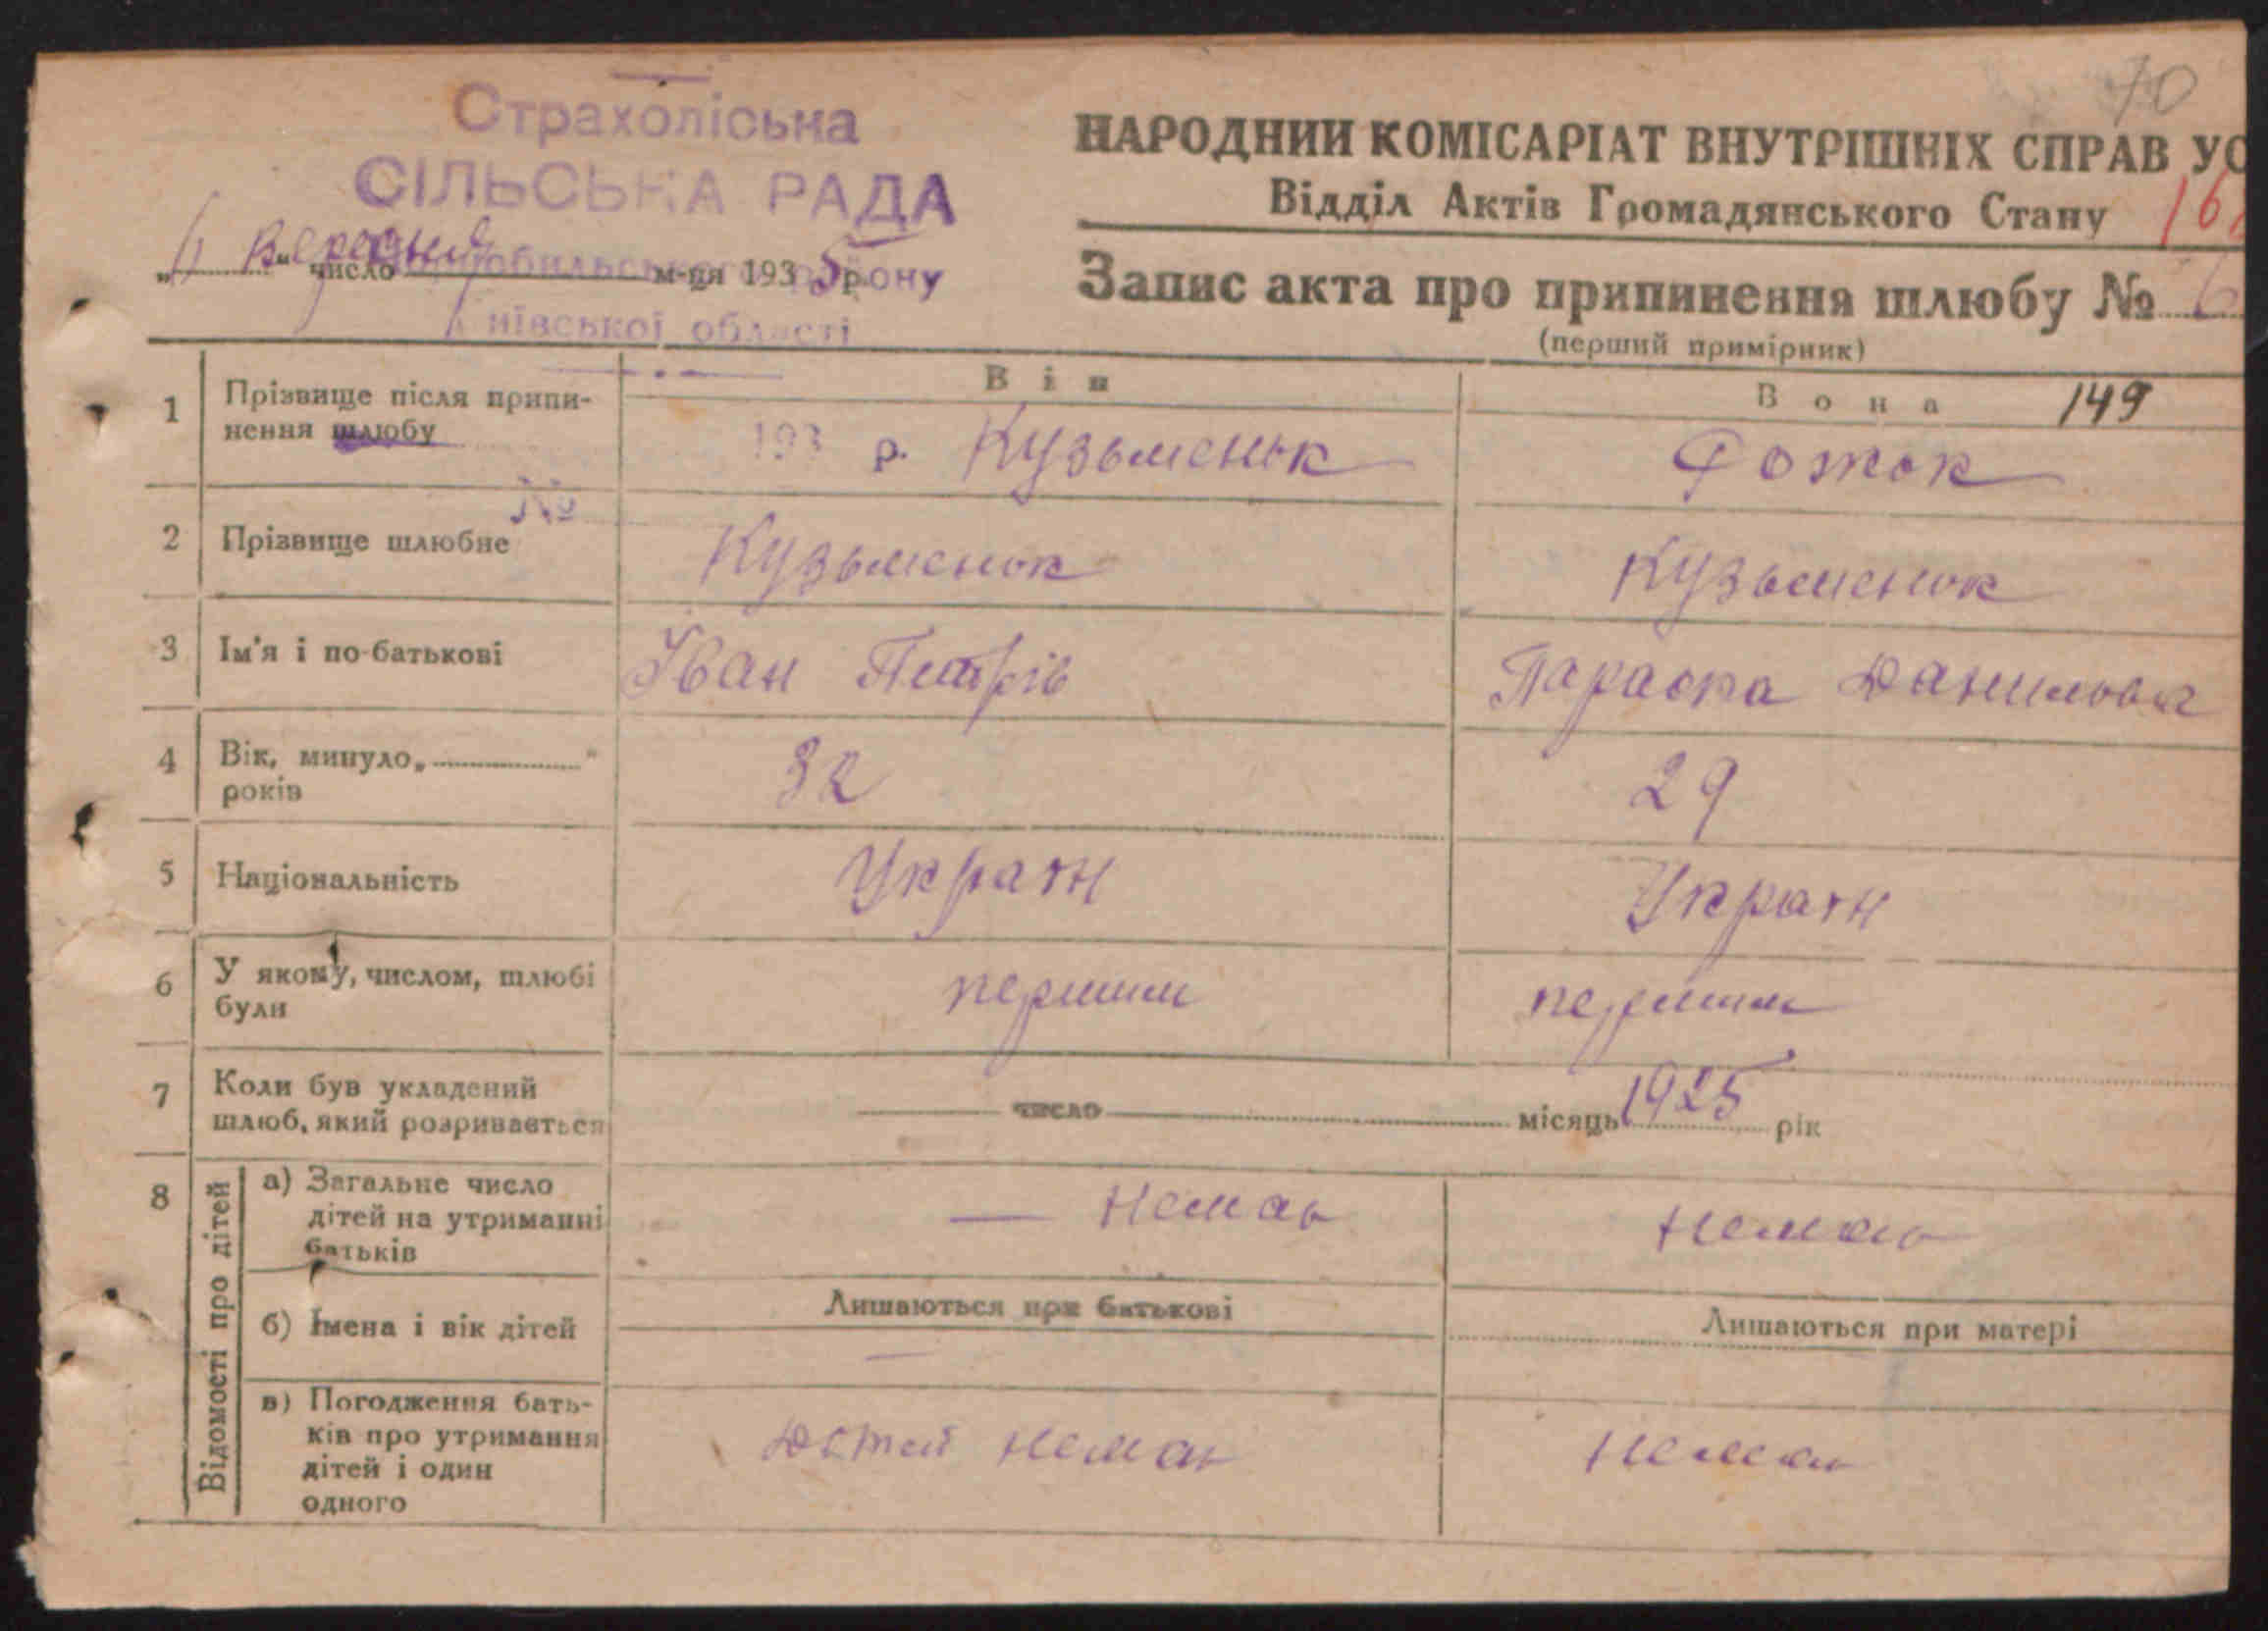 70
Страхоліська
СІЛЬСЬКА РАДА
Чорнобильського району
Київської області
НАРОДНИЙ КОМІСАРІАТ ВНУТРІШНІХ СПРАВ УС
Відділ Актів Громадянського Стану
16
„ 11 " вересня число м-ця 1935 р.
Запис акта про припинення шлюбу № 6
(перший примірник)
Він
Вона 149
1 Прізвище після припи-
нення шлюбу
193 р. Кузьменок
Фожок
№
2 Прізвище шлюбне
Кузьменок
Кузьменок
3 Ім'я і по-батькові
Іван Петрів
Параска Данилова
4 Вік, минуло „ "
років
32
29
5 Національність
Україн
Україн
6 У якому, числом, шлюбі
були
першим
першим
7 Коли був укладений
шлюб, який розривається
число місяць 1925 рік
8 Відомості про дітей
а) Загальне число
дітей на утриманні
батьків
— Немає
Немає
б) Імена і вік дітей
Лишаються при батькові
Лишаються при матері
—
в) Погодження бать-
ків про утримання
дітей і один
одного
Детей немає
немає